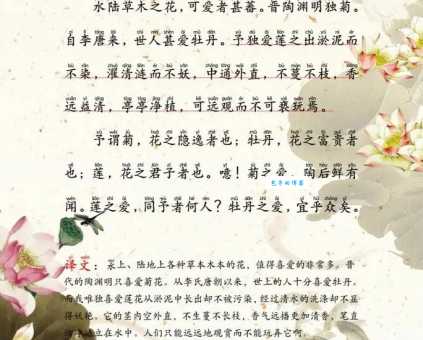 水陆草木之花，可爱者甚蕃。晋陶渊明独菊。
自李唐来，世人甚爱牡丹。予独爱莲之出淤泥而
不染，濯清涟而不妖，中通外直，不蔓不枝，香
远益清，亭亭净植，可远观而不可亵玩焉。
予谓菊，花之隐逸者也；牡丹，花之富贵者
也；莲，花之君子者也。噫！菊之爱，陶后鲜有
闻。莲之爱，同予者何人？牡丹之爱，宜乎众矣。
译文：水上、陆地上各种草本木本的花，值得喜爱的非常多。晋
代的陶渊明只喜爱菊花。从李氏唐朝以来，世上的人十分喜爱牡丹。
而我唯独喜爱莲花从淤泥中长出却不被污染，经过清水的洗涤却不显
得妖艳。它的茎内空外直，不生蔓不长枝，香气远播更加清香，笔直
立在水中。人们只能远远地观赏而不能玩弄它啊。